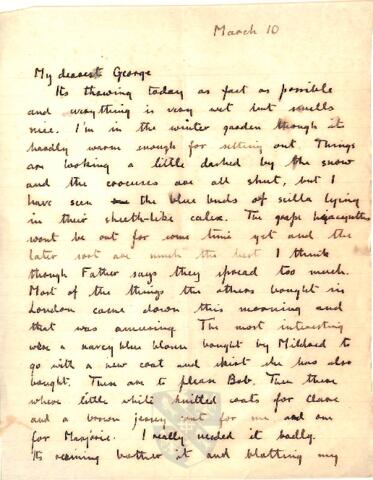 March 10
My dearest George
Its thawing today as fast as possible
and everything is very wet but smells
nice. I'm in the winter garden though it
hardly warm enough for sitting out. Things
are looking a little dashed by the snow
and the crocuses are all shut, but I
have seen the blue buds of scilla lying
in their sheath-like calex. The grape hyacynths
wont be out for some time yet and the
later sort are much the best I think
though Father says they spread too much.
Most of the things the others bought in
London came down this morning and
that was amusing. The most interesting
were a navey blue blouse bought by Mildred to
go with a new coat and skirt she has also
bought. These are to please Bob. Then there
where little white knitted coats for Clare
and a brown jersey coat for me and one
for Marjorie. I really needed it badly.
Its raining bother it and blotting my